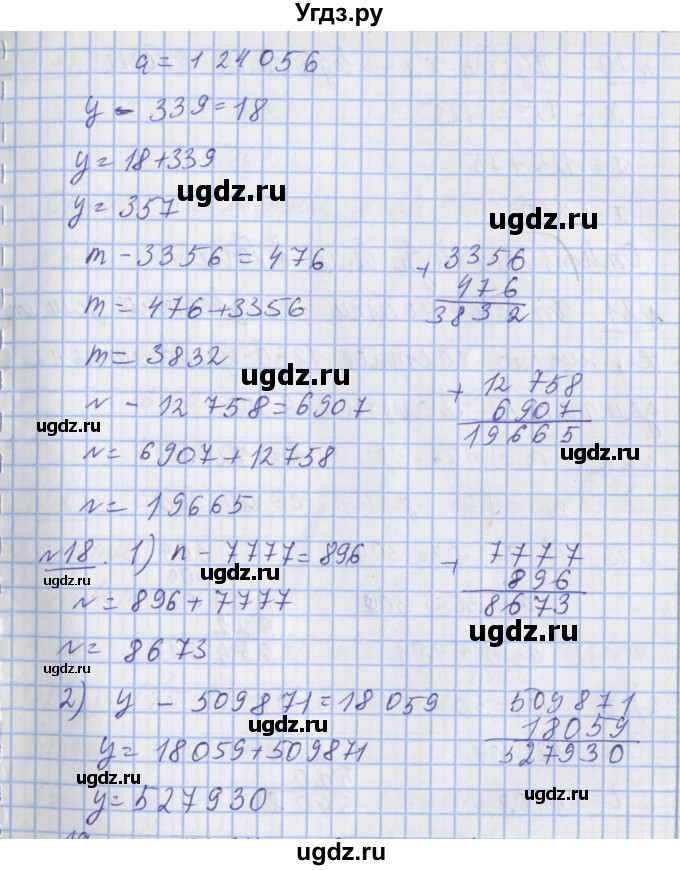 Угдз.ру
a = 124056
y - 339 = 18
y = 18 + 339
ugdz.ru
ugdz.ru
y = 357
m - 3356 = 476
+ 3356
476
3832
m = 476 + 3356
m = 3832
ugdz.ru
n - 12 758 = 6907
+ 12 758
6 907
19665
ugdz.ru
ugdz.ru
n = 6907 + 12758
n = 19665
№18. 1) n - 7777 = 896
+ 7777
896
8673
ugdz.ru
n = 896 + 7777
ugdz.ru
n = 8673
ugdz.ru
2) y - 509871 = 18 059
509871
18059
527930
ugdz.ru
y = 18059 + 509871
ugdz.ru
y = 527930
ugdz.ru
ugdz.ru